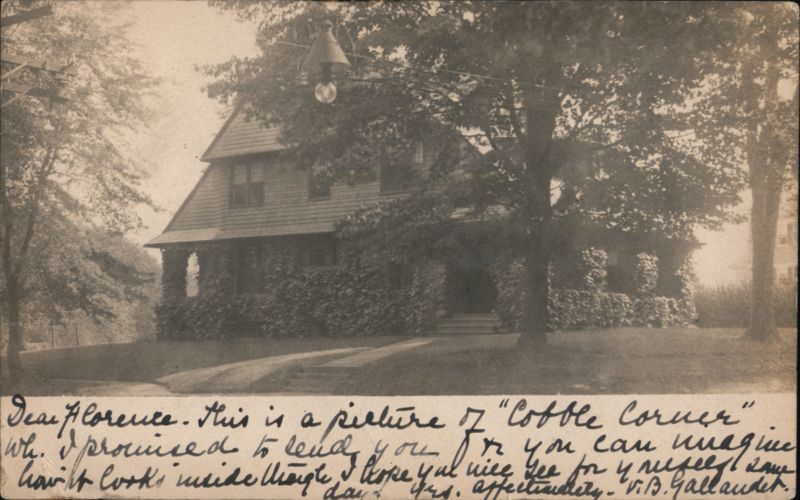 Dear Florence. This is a picture of "Cobble Corner"
wh. I promised to send you & you can imagine
how it looks inside though I hope you will see for yourself some
day. Yrs. affectionately. V.B. Gallaudet.